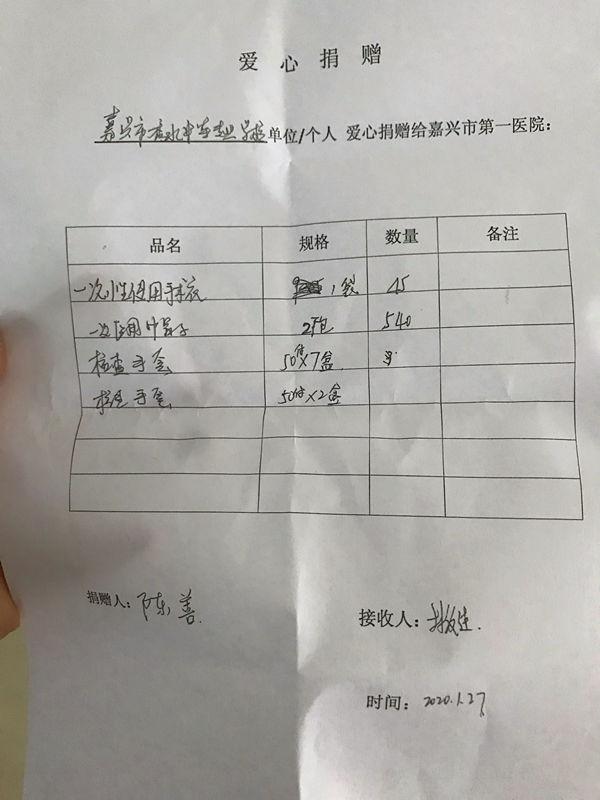 爱心捐赠
嘉兴市秀水中等专业学校单位/个人 爱心捐赠给嘉兴市第一医院：
品名 规格 数量 备注
一次性使用手术衣 1袋 45
一次医用帽子 2只/包 540
检查手套 50付×7盒
检查手套 50付×2盒
捐赠人：陈善
接收人：
时间：2020.1.27